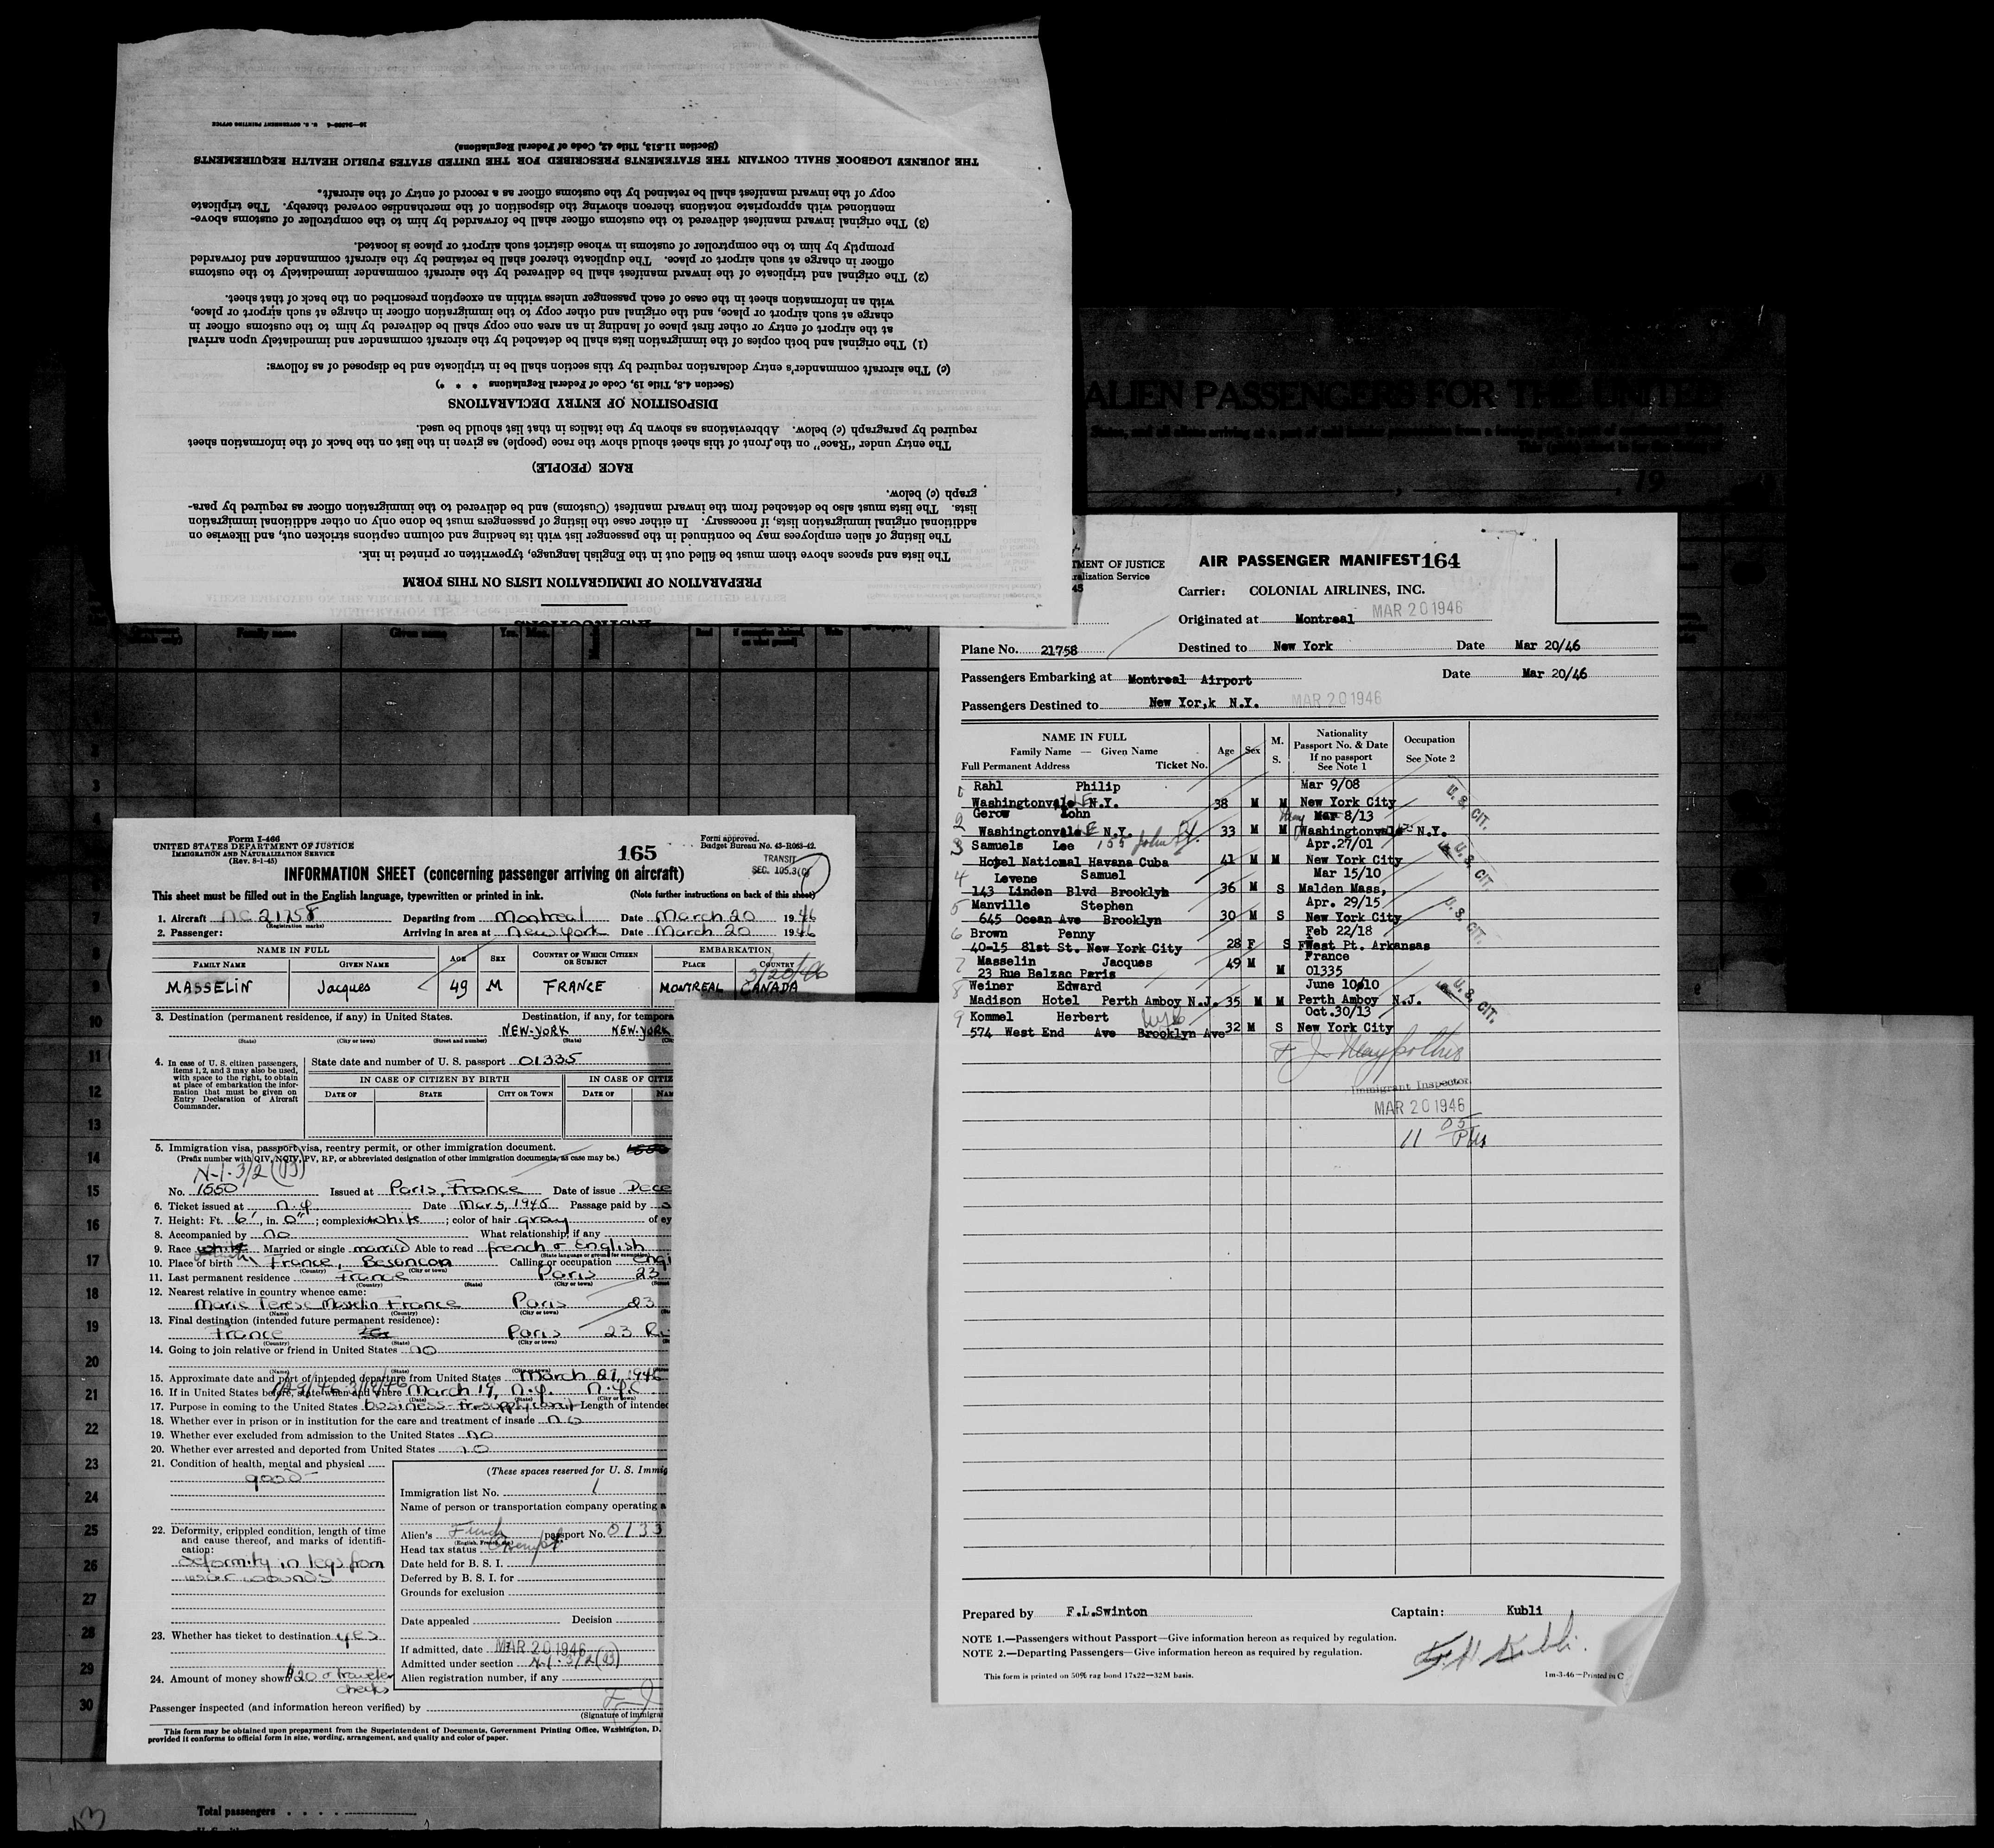 INSTRUCTIONS
PREPARATION OF IMMIGRATION LISTS ON THIS FORM
The lists and spaces above them must be filled out in the English language, typewritten or printed in ink.
The listing of alien employees may be continued in the passenger list with its heading and column captions stricken out, and likewise on
additional original immigration lists, if necessary. In either case the listing of passengers must be done only on other additional immigration
lists. The lists must also be detached from the inward manifest (Customs) and be delivered to the immigration officer as required by para-
graph (c) below.
RACE (PEOPLE)
The entry under "Race" on the front of this sheet should show the race (people) as given in the list on the back of the information sheet
required by paragraph (c) below. Abbreviations as shown by the italics in that list should be used.
DISPOSITION OF ENTRY DECLARATIONS
(Section 4.8, Title 19, Code of Federal Regulations * * *)
(c) The aircraft commander's entry declaration required by this section shall be in triplicate and be disposed of as follows:
(1) The original and both copies of the immigration lists shall be detached by the aircraft commander and immediately upon arrival
at the airport of entry or other first place of landing in an area one copy shall be delivered by him to the customs officer in
charge at such airport or place, and the original and other copy to the immigration officer in charge at such airport or place,
with an information sheet in the case of each passenger unless within an exception prescribed on the back of that sheet.
(2) The original and triplicate of the inward manifest shall be delivered by the aircraft commander immediately to the customs
officer in charge at such airport or place. The duplicate thereof shall be retained by the aircraft commander and forwarded
promptly by him to the comptroller of customs in whose district such airport or place is located.
(3) The original inward manifest delivered to the customs officer shall be forwarded by him to the comptroller of customs above-
mentioned with appropriate notations thereon showing the disposition of the merchandise covered thereby. The triplicate
copy of the inward manifest shall be retained by the customs officer as a record of entry of the aircraft.
THE JOURNEY LOGBOOK SHALL CONTAIN THE STATEMENTS PRESCRIBED FOR THE UNITED STATES PUBLIC HEALTH REQUIREMENTS
(Section 11.513, Title 42, Code of Federal Regulations)
U. S. GOVERNMENT PRINTING OFFICE
ALIEN PASSENGERS FOR THE UNITED
, 19
Family name Given name Yrs. Mos.
TMENT OF JUSTICE
ralization Service
45
AIR PASSENGER MANIFEST 164
Carrier: COLONIAL AIRLINES, INC.
Originated at Montreal MAR 20 1946
Plane No. 21758 Destined to New York Date Mar 20/46
Passengers Embarking at Montreal Airport Date Mar 20/46
Passengers Destined to New Yor,k N.Y. MAR 20 1946
NAME IN FULL
Family Name — Given Name
Full Permanent Address Ticket No.
Age Sex M. S.
Nationality
Passport No. & Date
If no passport
See Note 1
Occupation
See Note 2
1 Rahl Philip Mar 9/08
Washingtonvale N.Y. 38 M M New York City U.S. CIT.
2 Gerow John May Mar 8/13
Washingtonvale N.Y. 33 M M Washingtonvale N.Y.
155 John St.
3 Samuels Lee Apr.27/01
Hotel National Havana Cuba 41 M M New York City U.S. CIT.
4 Levene Samuel Mar 15/10
143 Linden Blvd Brooklyn 36 M S Malden Mass,
5 Manville Stephen Apr. 29/15
645 Ocean Ave Brooklyn 30 M S New York City U.S. CIT.
6 Brown Penny Feb 22/18
40-15 81st St. New York City 28 F S West Pt. Arkansas
7 Masselin Jacques 49 M France
23 Rue Belzac Paris M 01335
8 Weiner Edward June 10/10
Madison Hotel Perth Amboy N.J. 35 M M Perth Amboy N.J. U.S. CIT.
9 Kommel Herbert Oct.30/13
574 West End Ave Brooklyn Ave 32 M S New York City
Immigrant Inspector
MAR 20 1946
11 05 PM
Prepared by F.L.Swinton Captain: Kubli
NOTE 1.—Passengers without Passport—Give information hereon as required by regulation.
NOTE 2.—Departing Passengers—Give information hereon as required by regulation.
F.H. Kubli.
This form is printed on 50% rag bond 17x22—32M basis. 1m-3-46—Printed in C
Form I-466
UNITED STATES DEPARTMENT OF JUSTICE
IMMIGRATION AND NATURALIZATION SERVICE
(Rev. 8-1-45)
165
Form approved.
Budget Bureau No. 43-R063-42.
TRANSIT
SEC. 105.3(C)
INFORMATION SHEET (concerning passenger arriving on aircraft)
This sheet must be filled out in the English language, typewritten or printed in ink. (Note further instructions on back of this sheet)
1. Aircraft NC 21758 Departing from Montreal Date March 20 1946
(Registration marks)
2. Passenger: Arriving in area at New York Date March 20 1946
NAME IN FULL AGE SEX COUNTRY OF WHICH CITIZEN OR SUBJECT EMBARKATION
FAMILY NAME GIVEN NAME PLACE COUNTRY
3/20/46
MASSELIN Jacques 49 M FRANCE MONTREAL CANADA
3. Destination (permanent residence, if any) in United States. Destination, if any, for tempora
NEW-YORK NEW-YORK
(State) (City or town) (Street and number) (State)
4. In case of U. S. citizen passengers,
items 1, 2, and 3 may also be used,
with space to the right, to obtain
at place of embarkation the infor-
mation that must be given on
Entry Declaration of Aircraft
Commander.
State date and number of U. S. passport 01335
IN CASE OF CITIZEN BY BIRTH IN CASE OF CITIZE
DATE OF STATE CITY OR TOWN DATE OF NAM
5. Immigration visa, passport visa, reentry permit, or other immigration document.
(Prefix number with QIV, NQIV, PV, RP, or abbreviated designation of other immigration documents, as case may be.)
N-1-3/2 (93)
No. 1550 Issued at Paris, France Date of issue Dece
6. Ticket issued at n.y. Date Mar 5, 1946 Passage paid by s
7. Height: Ft. 6', in. 0"; complexion white; color of hair gray of ey
8. Accompanied by no What relationship, if any
9. Race white Married or single married Able to read french & English
(State language or ground for exemption)
10. Place of birth France, Besancon Calling or occupation engi
(Country) (City or town)
11. Last permanent residence France Paris 23
(Country) (State) (City or town)
12. Nearest relative in country whence came:
Marie Terese Masselin France Paris 23
(Name) (Country) (City or town)
13. Final destination (intended future permanent residence):
France Paris 23 Ru
(Country) (State) (City or town)
14. Going to join relative or friend in United States no
(Name) (State) (City or town)
15. Approximate date and port of intended departure from United States March 27, 1946
16. If in United States before, state when and where March 19, n.y. n.y.c.
(Date) (State) (City or town)
17. Purpose in coming to the United States business Length of intended
18. Whether ever in prison or in institution for the care and treatment of insane no
19. Whether ever excluded from admission to the United States no
20. Whether ever arrested and deported from United States no
21. Condition of health, mental and physical
good
22. Deformity, crippled condition, length of time
and cause thereof, and marks of identifi-
cation:
deformity in legs from
war wounds
23. Whether has ticket to destination yes
24. Amount of money shown $20 & traveler
checks
(These spaces reserved for U. S. Immig
Immigration list No. 1
Name of person or transportation company operating a
Alien's French passport No. 0133
(English, French, etc.)
Head tax status Exempt
Date held for B. S. I.
Deferred by B. S. I. for
Grounds for exclusion
Date appealed Decision
If admitted, date MAR 20 1946
Admitted under section N-1-3/2(93)
Alien registration number, if any
Passenger inspected (and information hereon verified) by
(Signature of immigra
This form may be obtained upon prepayment from the Superintendent of Documents, Government Printing Office, Washington, D.
provided it conforms to official form in size, wording, arrangement, and quality and color of paper.
3
4
7
8
9
10
11
12
13
14
15
16
17
18
19
20
21
22
23
24
25
26
27
28
29
30
Total passengers